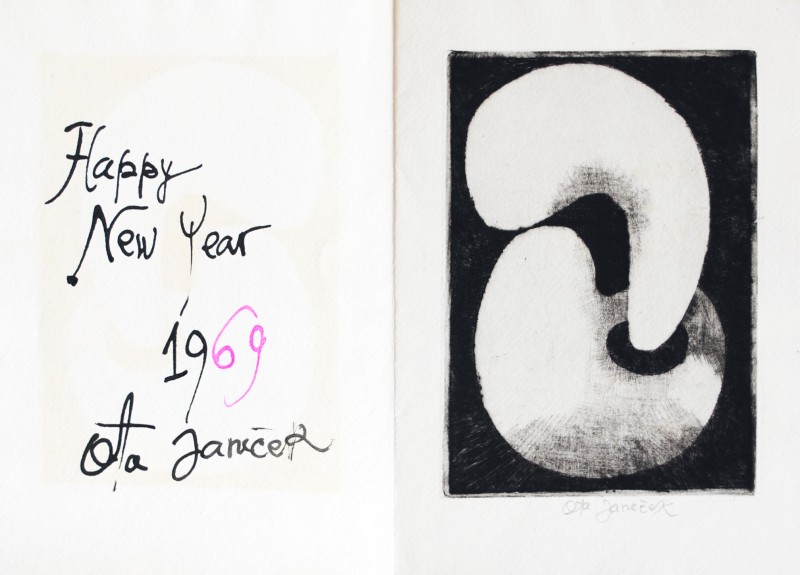 Happy
New Year
1969
Ota Janeček
Ota Janeček